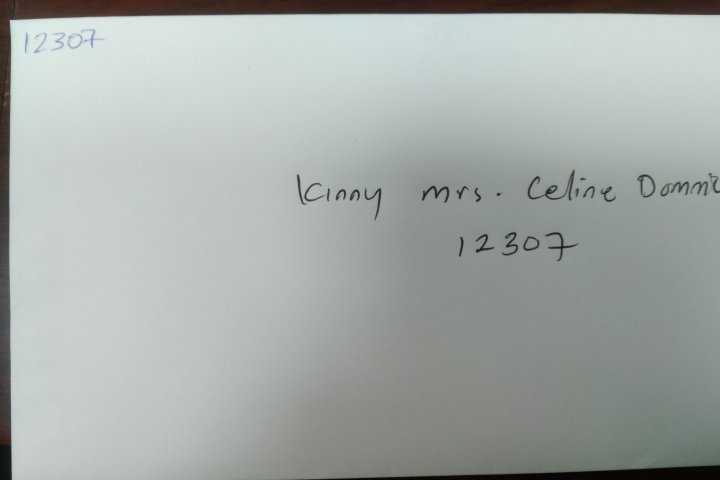 12307
Kinny mrs. Celine
12307